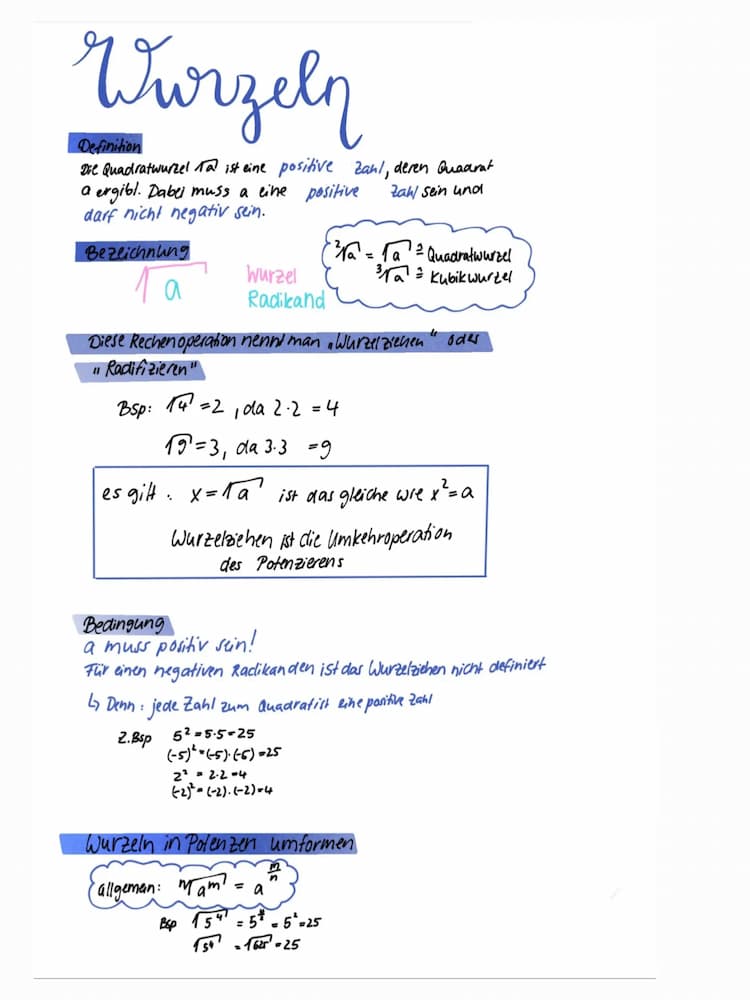 Wurzeln
Definition
Die Quadratwurzel √a ist eine positive Zahl, deren Quadrat
a ergibt. Dabei muss a eine positive Zahl sein und
darf nicht negativ sein.
Bezeichnung
√a
Wurzel
Radikand
²√a = √a ≙ Quadratwurzel
³√a ≙ Kubikwurzel
Diese Rechenoperation nennt man „Wurzelziehen" oder
„Radifizieren"
Bsp: √4 = 2, da 2·2 = 4
√9 = 3, da 3·3 = 9
es gilt: x = √a ist das gleiche wie x² = a
Wurzelziehen ist die Umkehroperation
des Potenzierens
Bedingung
a muss positiv sein!
Für einen negativen Radikanden ist das Wurzelziehen nicht definiert
↳ Denn: jede Zahl zum Quadrat ist eine positive Zahl
Z.Bsp 5² = 5·5 = 25
(-5)² = (-5)·(-5) = 25
2² = 2·2 = 4
(-2)² = (-2)·(-2) = 4
Wurzeln in Potenzen umformen
allgemein: ⁿ√aᵐ = a^(m/n)
Bsp √5⁴ = 5^(4/2) = 5² = 25
√5⁴ = √625 = 25